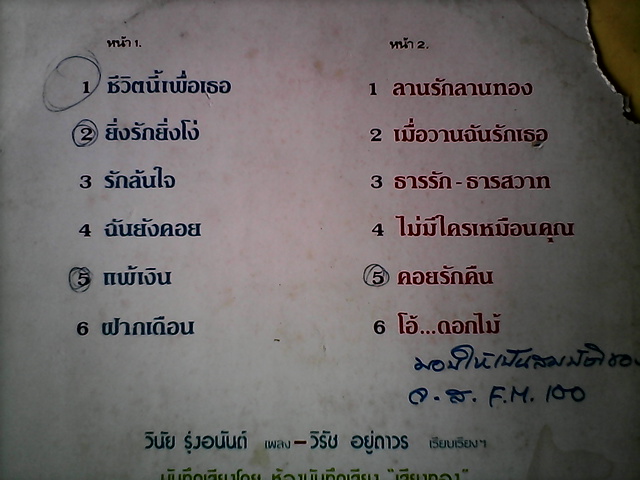 หน้า 1.
1 ชีวิตนี้เพื่อเธอ
2 ยิ่งรักยิ่งโง่
3 รักล้นใจ
4 ฉันยังคอย
5 แพ้เงิน
6 ฝากเดือน
หน้า 2.
1 ลานรักลานทอง
2 เมื่อวานฉันรักเธอ
3 ธารรัก - ธารสวาท
4 ไม่มีใครเหมือนคุณ
5 คอยรักคืน
6 โอ้...ดอกไม้
มอบให้เป็นสมบัติของ
จ. ส. F.M. 100
วินัย รุ่งอนันต์ เพลง – วิรัช อยู่ถาวร เรียบเรียงฯ
บันทึกเสียงโดย ห้องบันทึกเสียง "เสียงทอง"